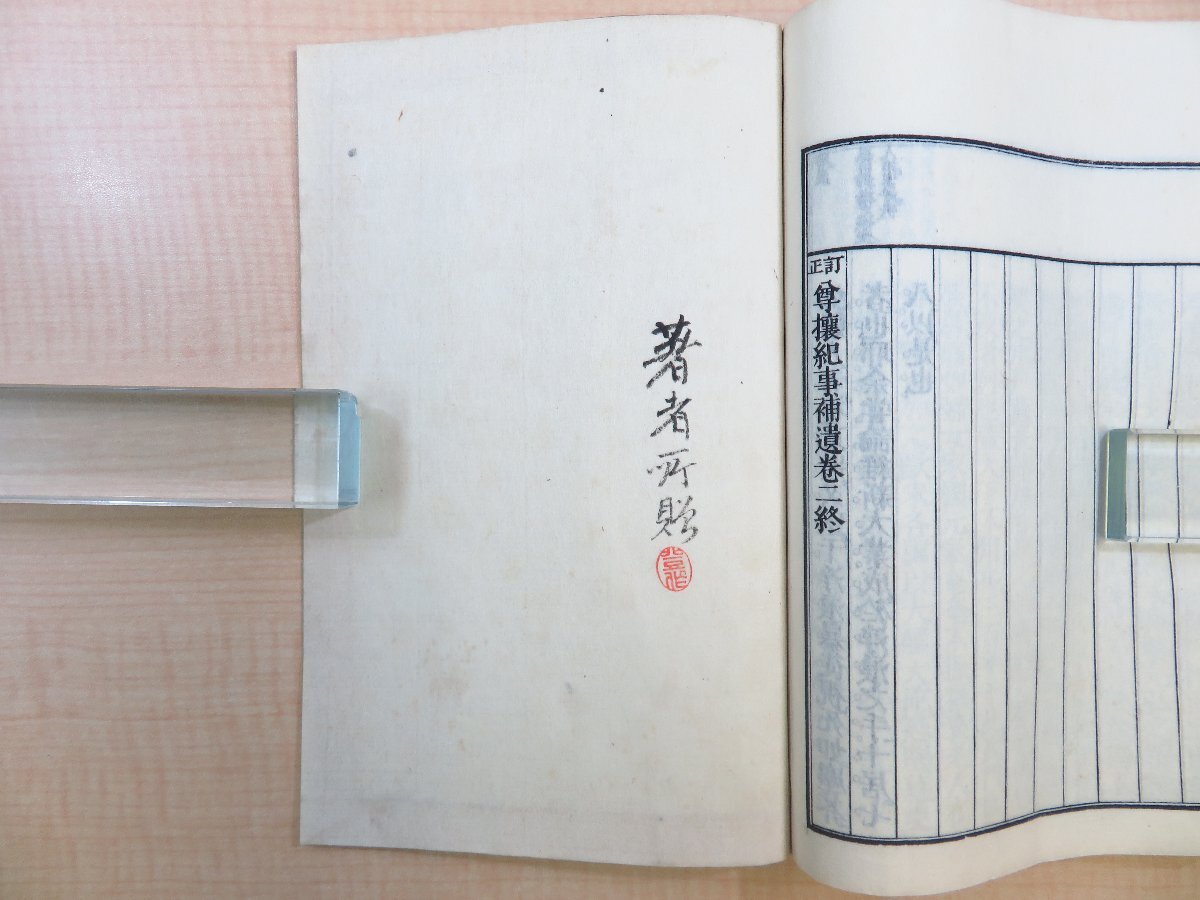 訂正尊攘紀事補遺卷二終
著者所贈